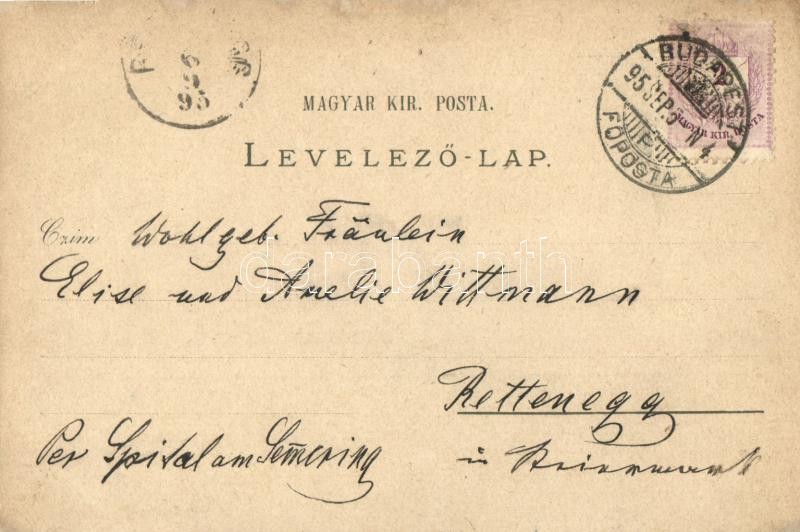 6
9
95
BUDAPEST
95 SEP. N4
FŐPOSTA
MAGYAR KIR. POSTA
MAGYAR KIR. POSTA.
LEVELEZŐ-LAP.
Czim Wohlgeb. Fräulein
Elise und Amelie Wittmann
darabanth
Rettenegg
Per Spital am Sem̄ering
in Steiermark